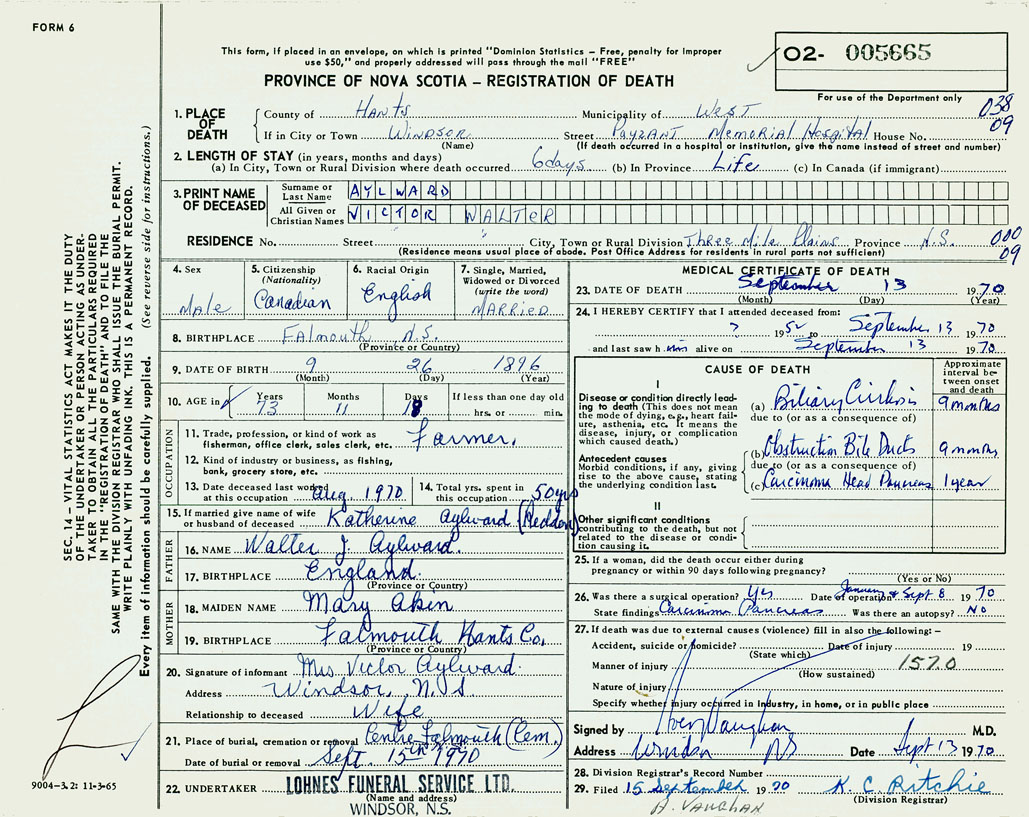 FORM 6
This form, if placed in an envelope, on which is printed "Dominion Statistics – Free, penalty for improper
use $50," and properly addressed will pass through the mail "FREE"
PROVINCE OF NOVA SCOTIA – REGISTRATION OF DEATH
O2- 005665
For use of the Department only
038
09
SEC. 14 – VITAL STATISTICS ACT MAKES IT THE DUTY
OF THE UNDERTAKER OR PERSON ACTING AS UNDER-
TAKER TO OBTAIN ALL THE PARTICULARS REQUIRED
IN THE "REGISTRATION OF DEATH" AND TO FILE THE
SAME WITH THE DIVISION REGISTRAR WHO SHALL ISSUE THE BURIAL PERMIT.
WRITE PLAINLY WITH UNFADING INK. THIS IS A PERMANENT RECORD.
Every item of information should be carefully supplied. (See reverse side for instructions.)
1. PLACE OF DEATH
County of Hants Municipality of West
If in City or Town Windsor Street Payzant Memorial Hospital House No.
(Name) (If death occurred in a hospital or institution, give the name instead of street and number)
2. LENGTH OF STAY (in years, months and days)
(a) In City, Town or Rural Division where death occurred 6 days (b) In Province Life (c) In Canada (if immigrant)
3. PRINT NAME OF DECEASED
Surname or Last Name AYLWARD
All Given or Christian Names VICTOR WALTER
RESIDENCE No. Street City, Town or Rural Division Three Mile Plains Province N.S. 000
09
(Residence means usual place of abode. Post Office Address for residents in rural parts not sufficient)
4. Sex
Male
5. Citizenship
(Nationality)
Canadian
6. Racial Origin
English
7. Single, Married,
Widowed or Divorced
(write the word)
MARRIED
8. BIRTHPLACE Falmouth N.S.
(Province or Country)
9. DATE OF BIRTH 9 26 1896
(Month) (Day) (Year)
10. AGE in Years Months Days If less than one day old
73 11 18 hrs. or min.
OCCUPATION
11. Trade, profession, or kind of work as Farmer.
fisherman, office clerk, sales clerk, etc.
12. Kind of industry or business, as fishing,
bank, grocery store, etc.
13. Date deceased last worked
at this occupation Aug. 1970
14. Total yrs. spent in
this occupation 50 yrs
15. If married give name of wife
or husband of deceased Katherine Aylward (Redden)
FATHER
16. NAME Walter J. Aylward.
17. BIRTHPLACE England.
(Province or Country)
MOTHER
18. MAIDEN NAME Mary Aken
19. BIRTHPLACE Falmouth Hants Co.
(Province or Country)
20. Signature of informant Mrs Victor Aylward.
Address Windsor, N.S
Relationship to deceased Wife
21. Place of burial, cremation or removal Centre Falmouth (Cem.)
Date of burial or removal Sept. 15th 1970
22. UNDERTAKER LOHNES FUNERAL SERVICE LTD.
(Name and address)
WINDSOR, N.S.
9004–3.2: 11-3-65
MEDICAL CERTIFICATE OF DEATH
23. DATE OF DEATH September 13 1970
(Month) (Day) (Year)
24. I HEREBY CERTIFY that I attended deceased from:
? 195 to September 13 1970
and last saw him alive on September 13 1970
CAUSE OF DEATH
Approximate
interval be-
tween onset
and death
I
Disease or condition directly lead-
ing to death (This does not mean
the mode of dying, e.g., heart fail-
ure, asthenia, etc. It means the
disease, injury, or complication
which caused death.)
(a) Biliary Cirrhosis 9 months
due to (or as a consequence of)
Antecedent causes
Morbid conditions, if any, giving
rise to the above cause, stating
the underlying condition last.
(b) Obstruction Bile Ducts 9 months
due to (or as a consequence of)
(c) Carcinoma Head Pancreas 1 year
II
Other significant conditions
contributing to the death, but not
related to the disease or condi-
tion causing it.
25. If a woman, did the death occur either during
pregnancy or within 90 days following pregnancy?
(Yes or No)
26. Was there a surgical operation? Yes Date of operation January & Sept 8 1970
State findings Carcinoma Pancreas Was there an autopsy? No
27. If death was due to external causes (violence) fill in also the following: –
Accident, suicide or homicide? Date of injury 19
(State which)
Manner of injury 1570
(How sustained)
Nature of injury
Specify whether injury occurred in industry, in home, or in public place
Signed by Vaughan M.D.
Address Windsor NS Date Sept 13 1970
28. Division Registrar's Record Number
29. Filed 15 September 1970 K. C. Ritchie
(Division Registrar)
A. VAUGHAN